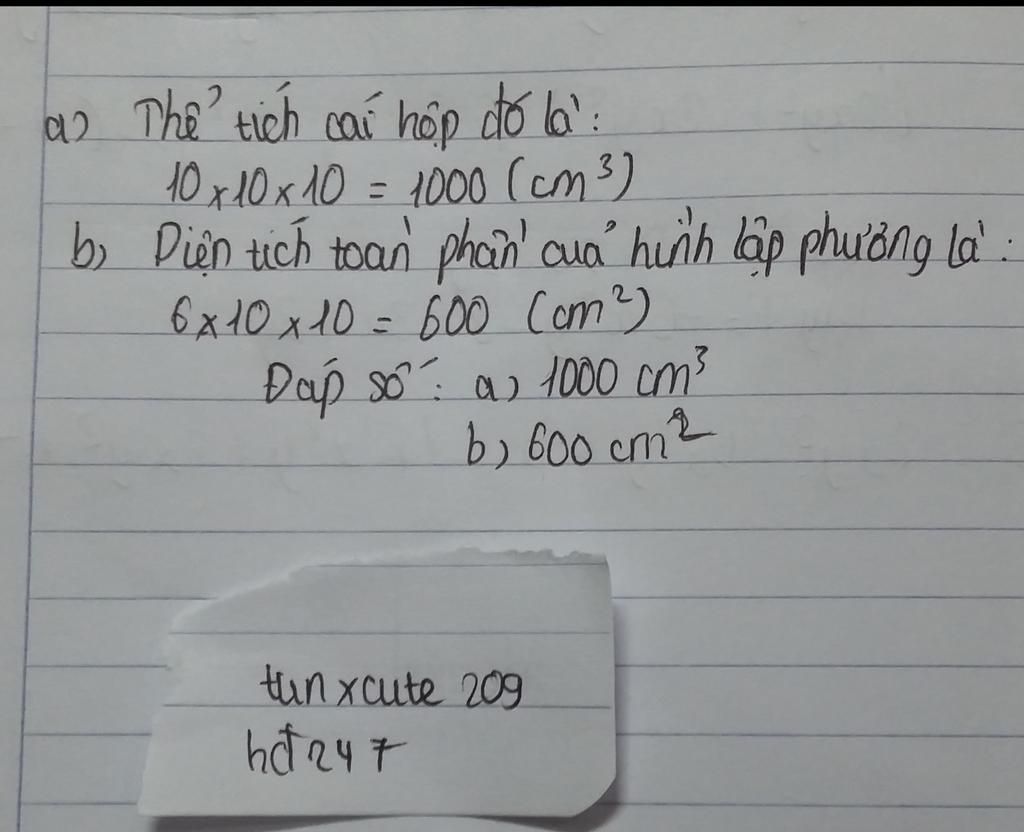 a) Thể tích cái hộp đó là:
10 x 10 x 10 = 1000 (cm³)
b) Diện tích toàn phần của hình lập phương là:
6 x 10 x 10 = 600 (cm²)
Đáp số: a) 1000 cm³
b) 600 cm²
tun x cute 209
hđ247